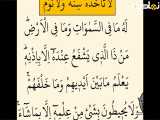 لَا تَأْخُذُهُ سِنَةٌ وَلَا نَوْمٌ
لَّهُ مَا فِي السَّمَاوَاتِ وَمَا فِي الْأَرْضِ
مَن ذَا الَّذِي يَشْفَعُ عِندَهُ إِلَّا بِإِذْنِهِ
يَعْلَمُ مَا بَيْنَ أَيْدِيهِمْ وَمَا خَلْفَهُمْ
وَلَا يُحِيطُونَ بِشَيْءٍ مِّنْ عِلْمِهِ إِلَّا بِمَا شَاءَ